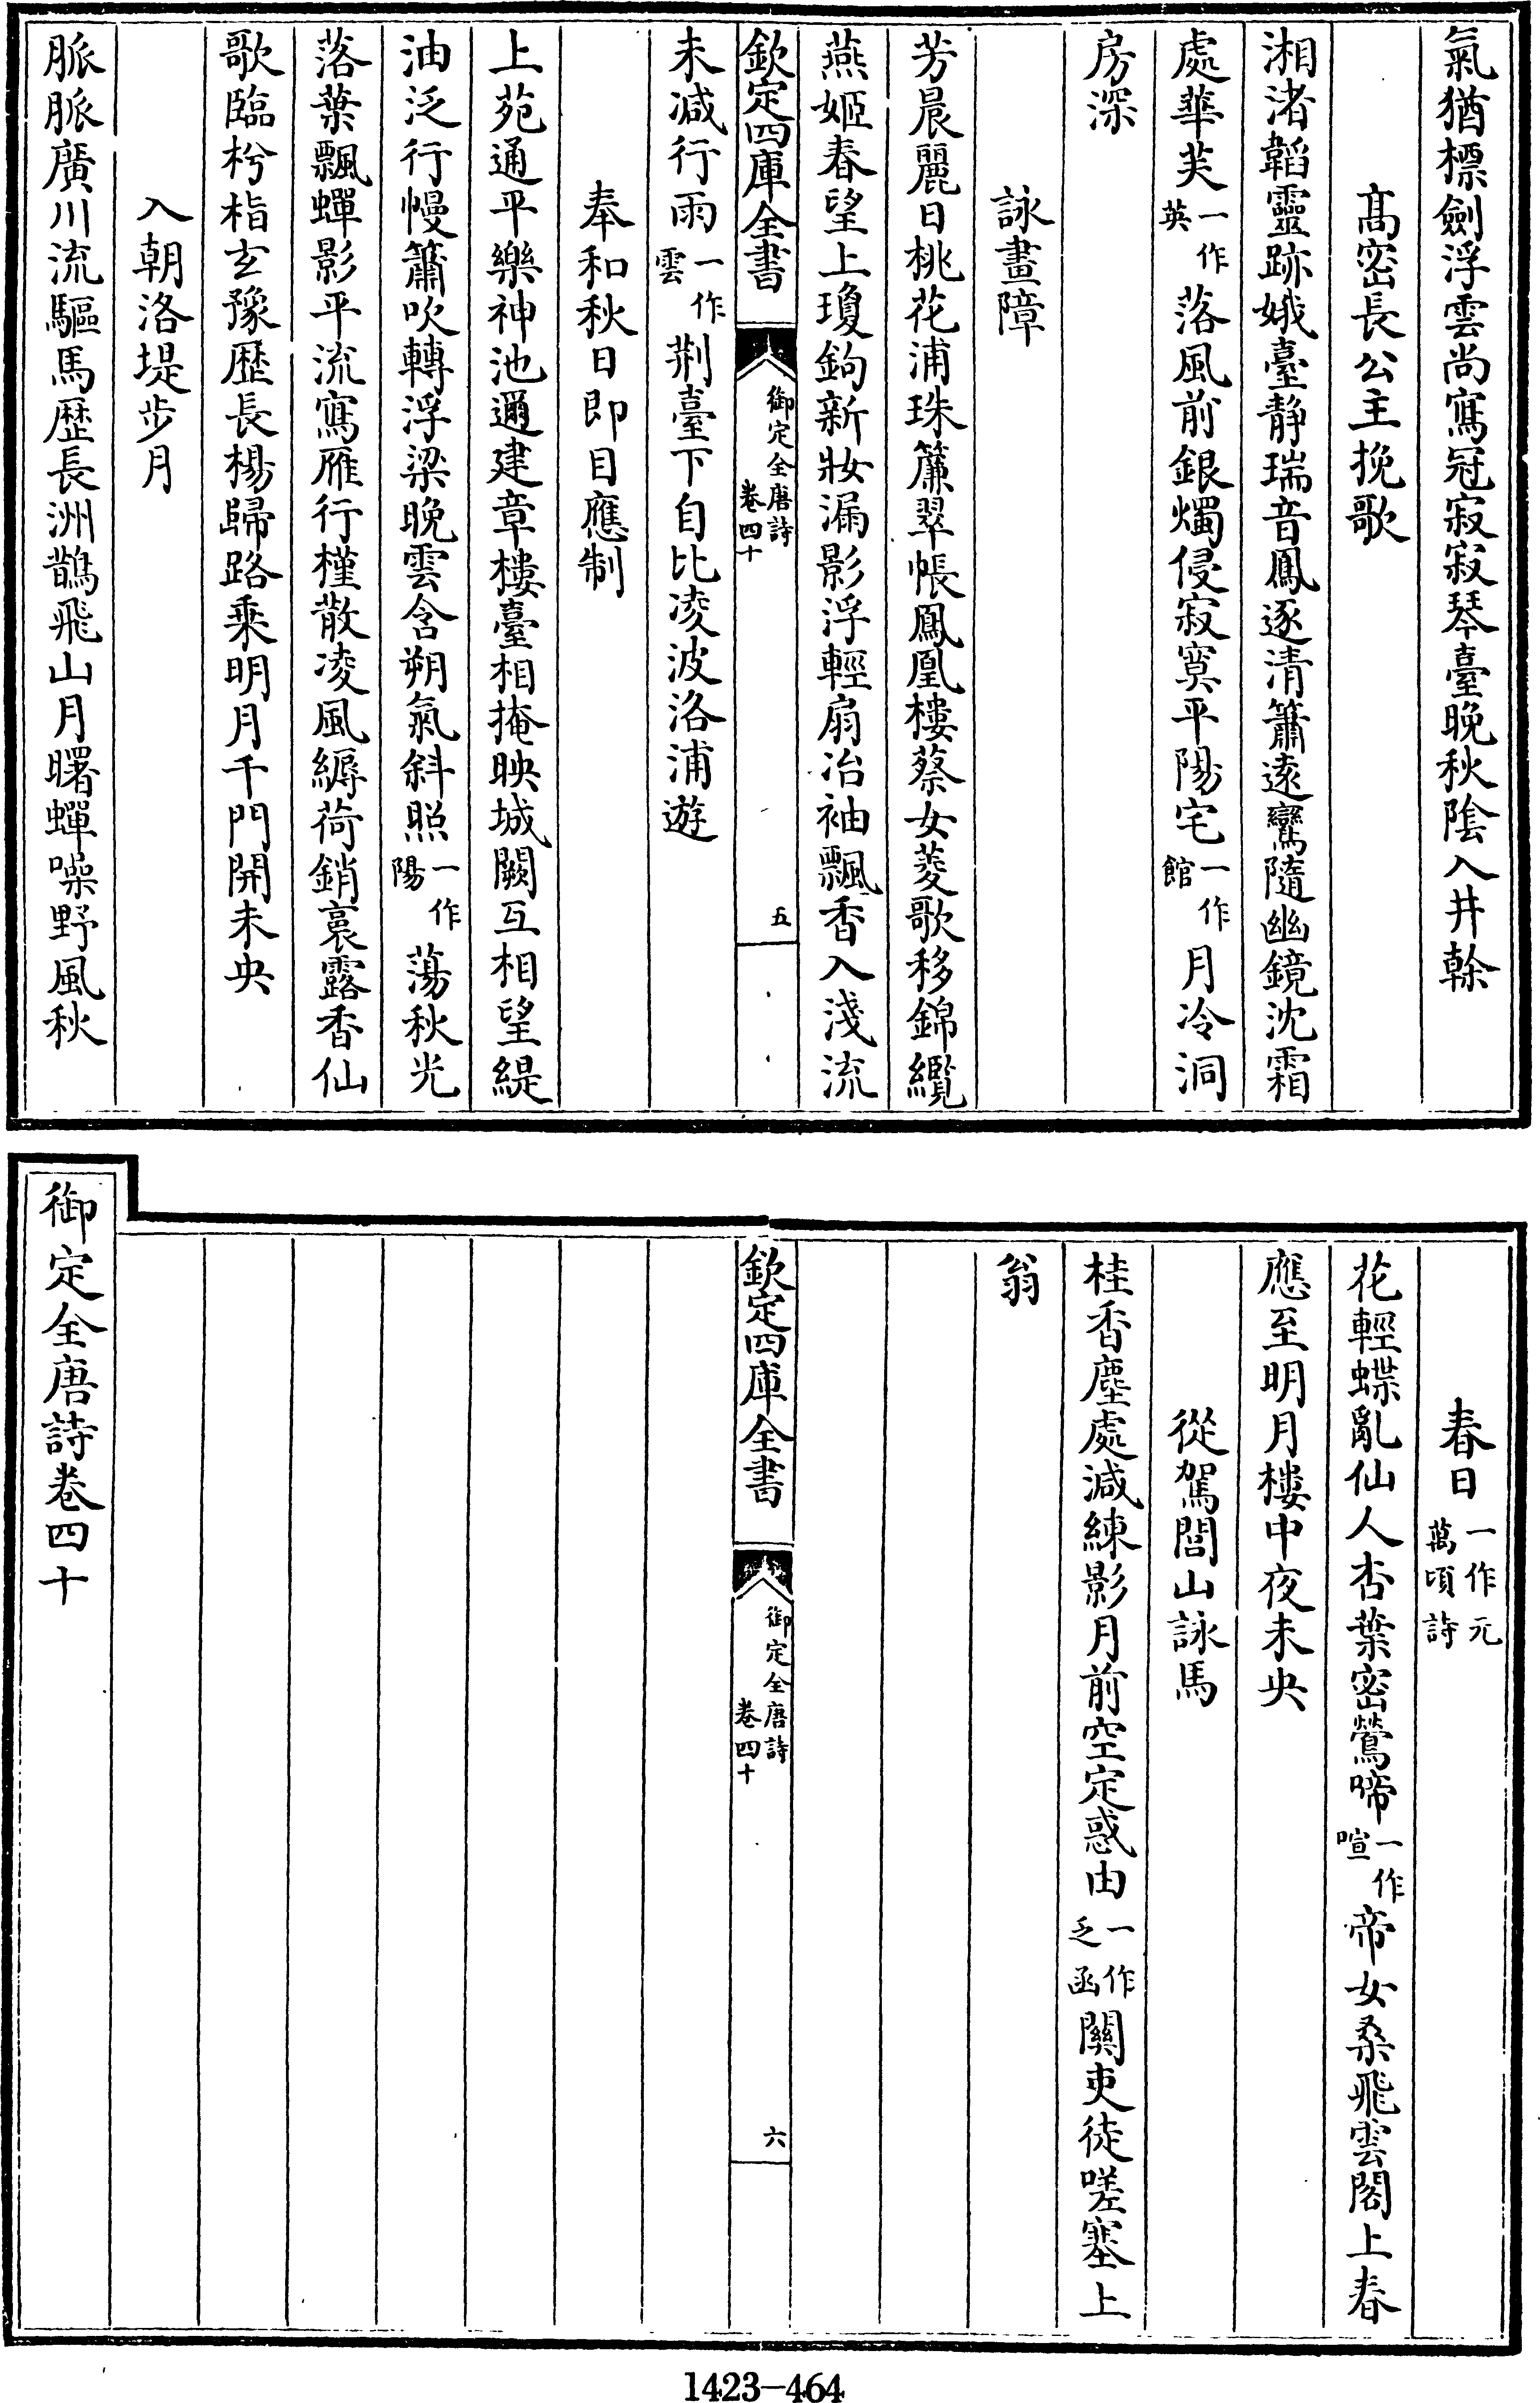 氣猶標劍浮雲尚寫冠寂寂琴臺晚秋陰入井幹
高密長公主挽歌
湘渚韜靈跡娥臺静瑞音鳳逐清簫遠鸞隨幽鏡沈霜
處華芙一作英落風前銀燭侵寂寞平陽宅一作館月冷洞
房深
詠畫障
芳晨麗日桃花浦珠簾翠帳鳳凰樓蔡女菱歌移錦纜
燕姬春望上瓊鉤新妝漏影浮輕扇冶袖飄香入淺流
欽定四庫全書
御定全唐詩
卷四十
五
未減行雨一作雲荆臺下自比凌波洛浦遊
奉和秋日即目應制
上苑通平樂神池邇建章樓臺相掩映城闕互相望緹
油泛行幔簫吹轉浮梁晚雲含朔氣斜照一作陽蕩秋光
落葉飄蟬影平流寫雁行槿散凌風縟荷銷裛露香仙
歌臨枍栺玄豫歴長楊歸路乘明月千門開未央
入朝洛堤步月
脈脈廣川流驅馬歴長洲鵲飛山月曙蟬噪野風秋
春日一作元萬頃詩
花輕蝶亂仙人杏葉密鶯啼一作喧帝女桑飛雲閣上春
應至明月樓中夜未央
從駕閭山詠馬
桂香塵處減練影月前空定惑由一作乏函關吏徒嗟塞上
翁
欽定四庫全書
御定全唐詩
卷四十
六
御定全唐詩卷四十
1423-464